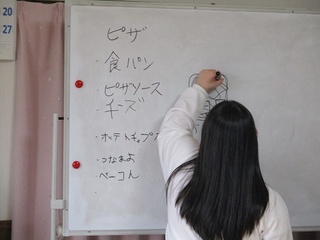 20
27
ピザ
・食パン
・ピザソース
・チーズ
・ポテトチップス
・つなまよ
・べーこん